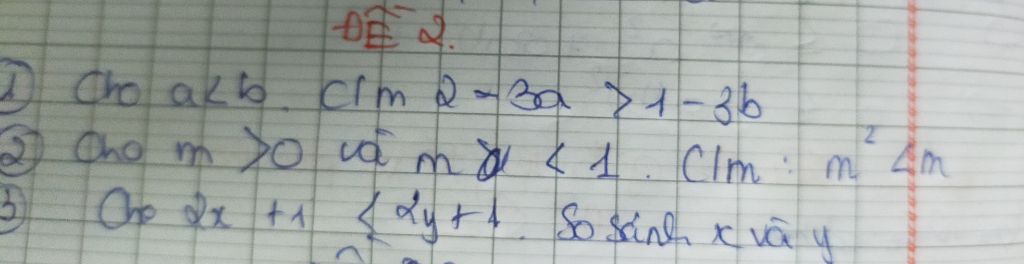 ĐỀ 2.
① Cho a<b. C/m 2-3a > 1-3b
② Cho m >0 và m < 1. C/m: m² < m
③ Cho 2x +1 < 2y+1. So sánh x và y